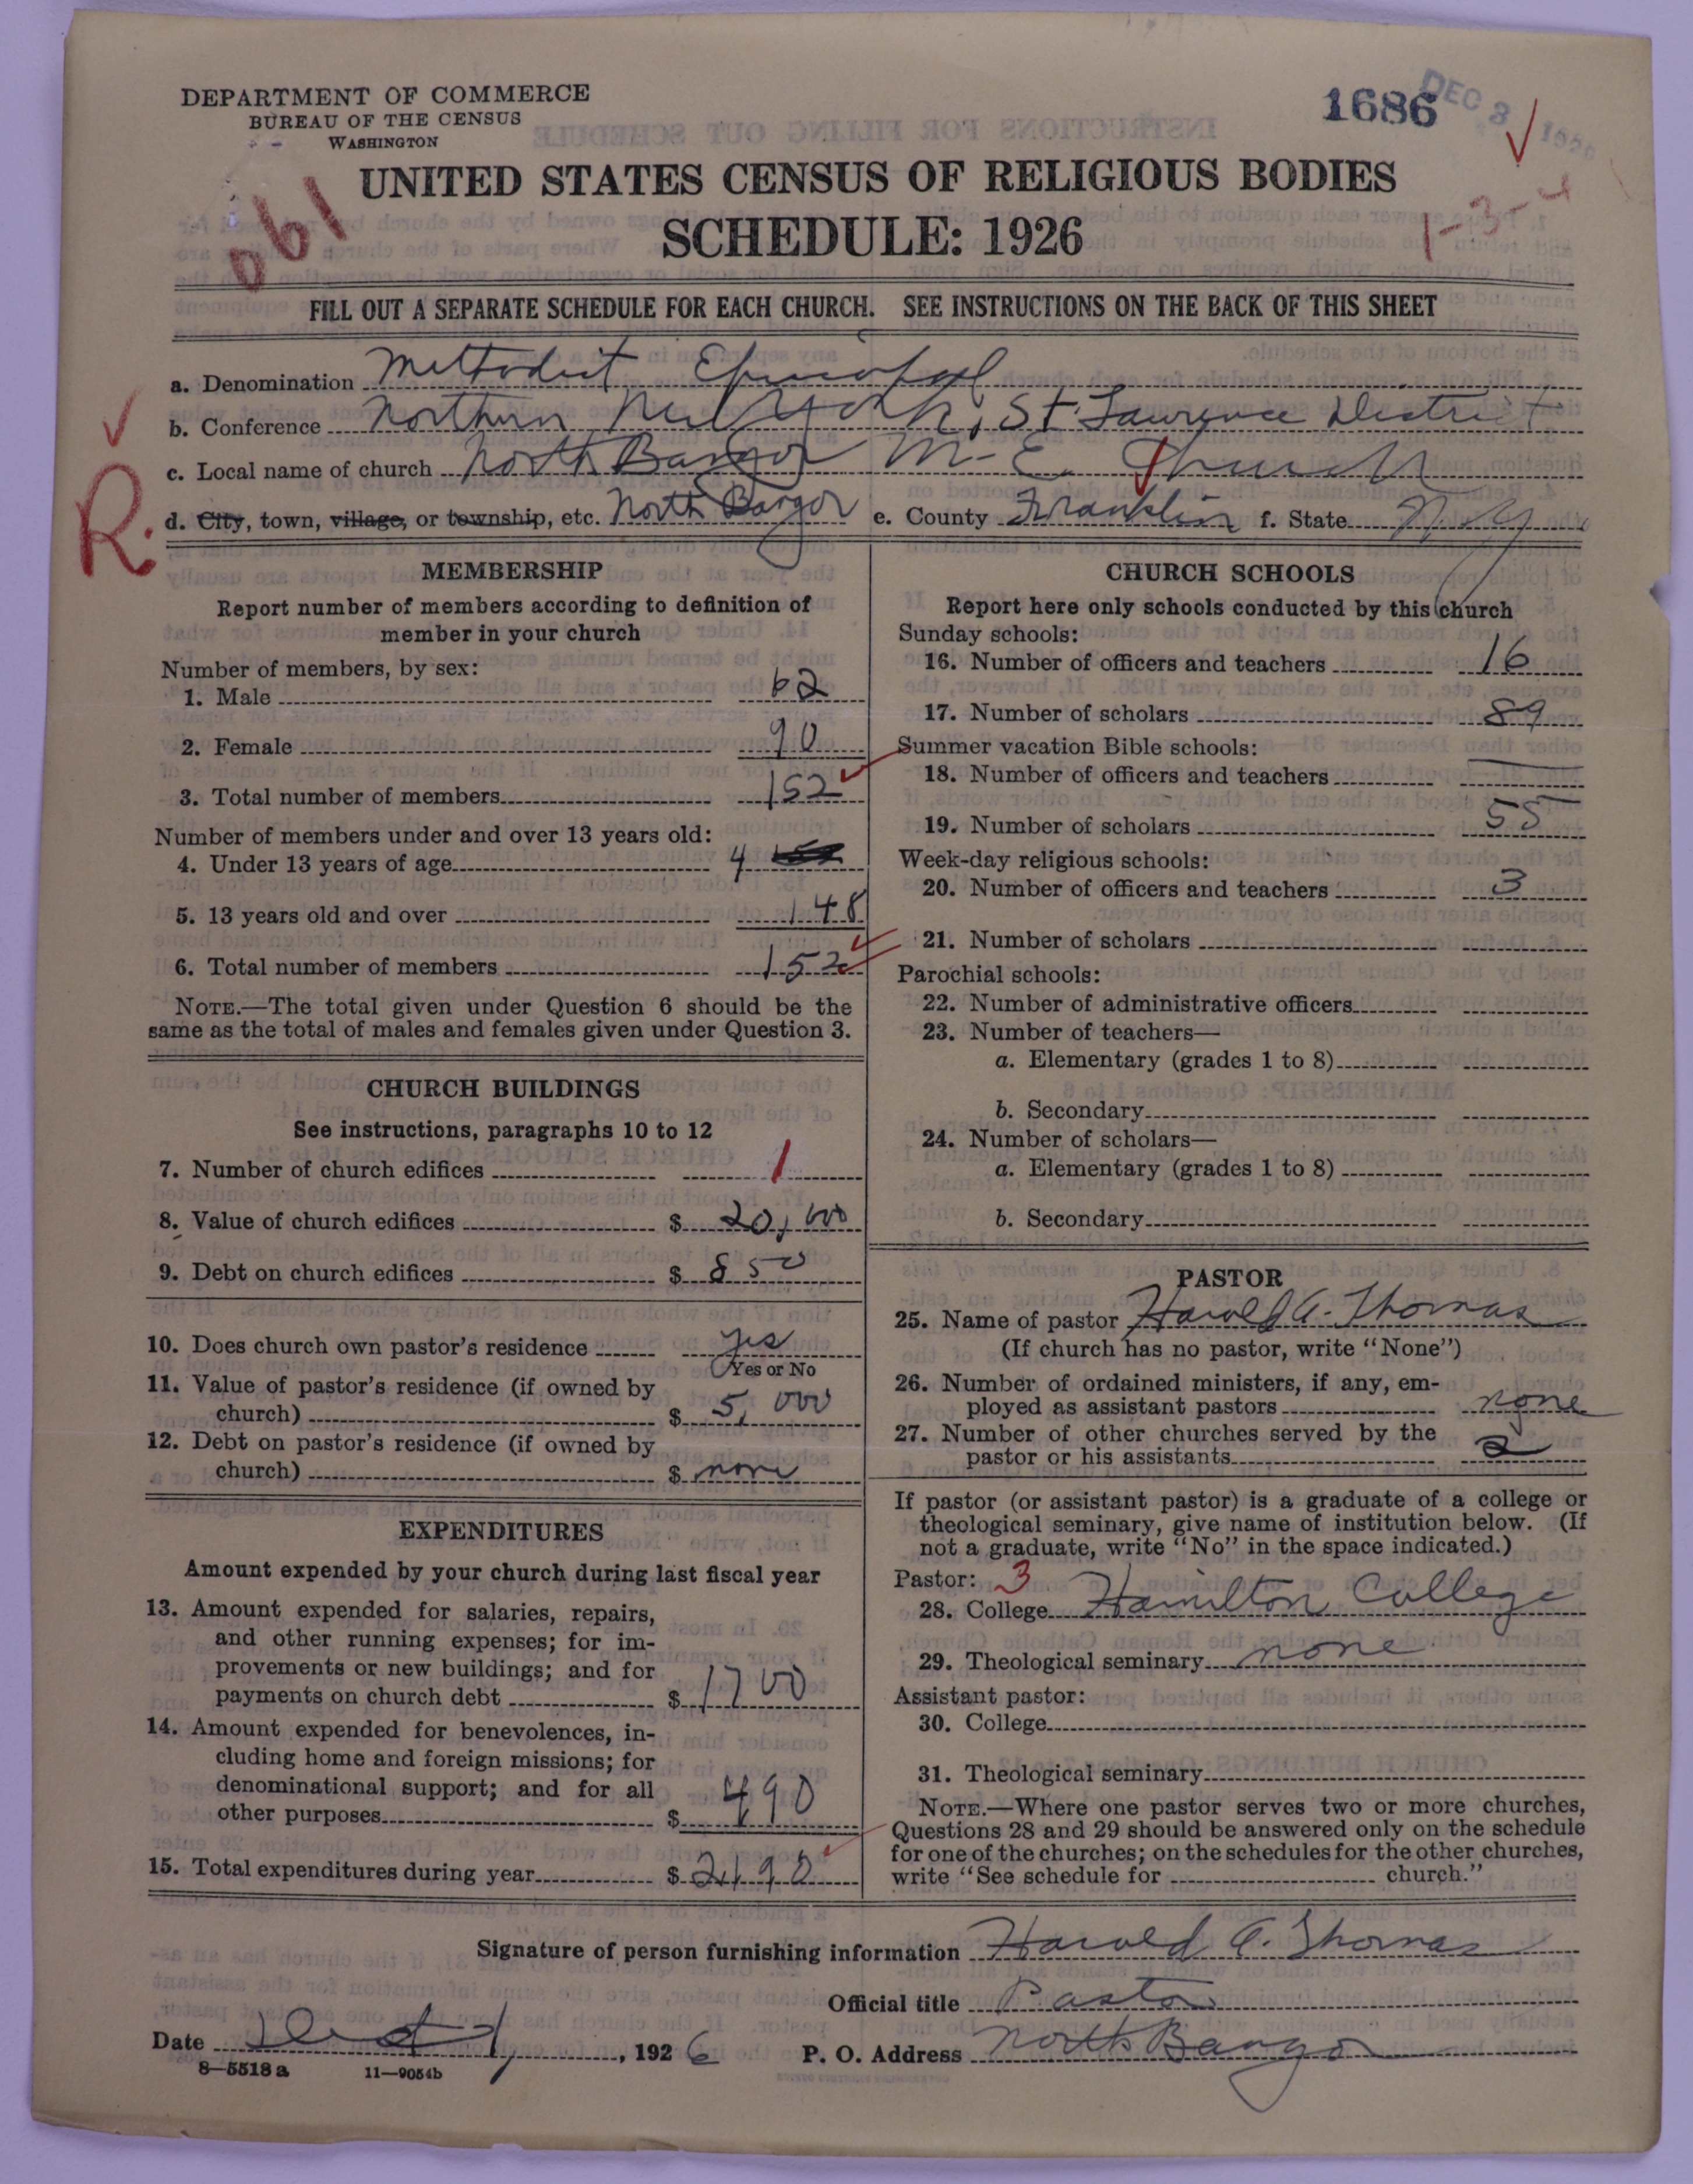 DEPARTMENT OF COMMERCE
BUREAU OF THE CENSUS
WASHINGTON
1686
DEC 3 1926
190
1-3-4
UNITED STATES CENSUS OF RELIGIOUS BODIES
SCHEDULE: 1926
FILL OUT A SEPARATE SCHEDULE FOR EACH CHURCH. SEE INSTRUCTIONS ON THE BACK OF THIS SHEET
a. Denomination Methodist Episcopal
b. Conference Northern New York, St. Lawrence District
c. Local name of church North Bangor M-E. Church
R.
d. City, town, village, or township, etc. North Bangor e. County Franklin f. State N.Y
MEMBERSHIP
Report number of members according to definition of
member in your church
Number of members, by sex:
1. Male 62
2. Female 90
3. Total number of members 152
Number of members under and over 13 years old:
4. Under 13 years of age 4
5. 13 years old and over 148
6. Total number of members 152
NOTE.—The total given under Question 6 should be the
same as the total of males and females given under Question 3.
CHURCH BUILDINGS
See instructions, paragraphs 10 to 12
7. Number of church edifices 1
8. Value of church edifices $ 20,000
9. Debt on church edifices $ 850
10. Does church own pastor's residence yes
Yes or No
11. Value of pastor's residence (if owned by
church) $ 5,000
12. Debt on pastor's residence (if owned by
church) $ none
EXPENDITURES
Amount expended by your church during last fiscal year
13. Amount expended for salaries, repairs,
and other running expenses; for im-
provements or new buildings; and for
payments on church debt $ 1700
14. Amount expended for benevolences, in-
cluding home and foreign missions; for
denominational support; and for all
other purposes $ 490
15. Total expenditures during year $ 2190
CHURCH SCHOOLS
Report here only schools conducted by this church
Sunday schools:
16. Number of officers and teachers 16
17. Number of scholars 89
Summer vacation Bible schools:
18. Number of officers and teachers
19. Number of scholars 55
Week-day religious schools:
20. Number of officers and teachers 3
21. Number of scholars
Parochial schools:
22. Number of administrative officers
23. Number of teachers—
a. Elementary (grades 1 to 8)
b. Secondary
24. Number of scholars—
a. Elementary (grades 1 to 8)
b. Secondary
PASTOR
25. Name of pastor Harold A. Thomas
(If church has no pastor, write "None")
26. Number of ordained ministers, if any, em-
ployed as assistant pastors none
27. Number of other churches served by the
pastor or his assistants 2
If pastor (or assistant pastor) is a graduate of a college or
theological seminary, give name of institution below. (If
not a graduate, write "No" in the space indicated.)
Pastor: 3
28. College Hamilton College
29. Theological seminary none
Assistant pastor:
30. College
31. Theological seminary
NOTE.—Where one pastor serves two or more churches,
Questions 28 and 29 should be answered only on the schedule
for one of the churches; on the schedules for the other churches,
write "See schedule for church."
Signature of person furnishing information Harold A. Thomas
Official title Pastor
Date 1, 1926 P. O. Address North Bangor
8—5518 a 11—9054b